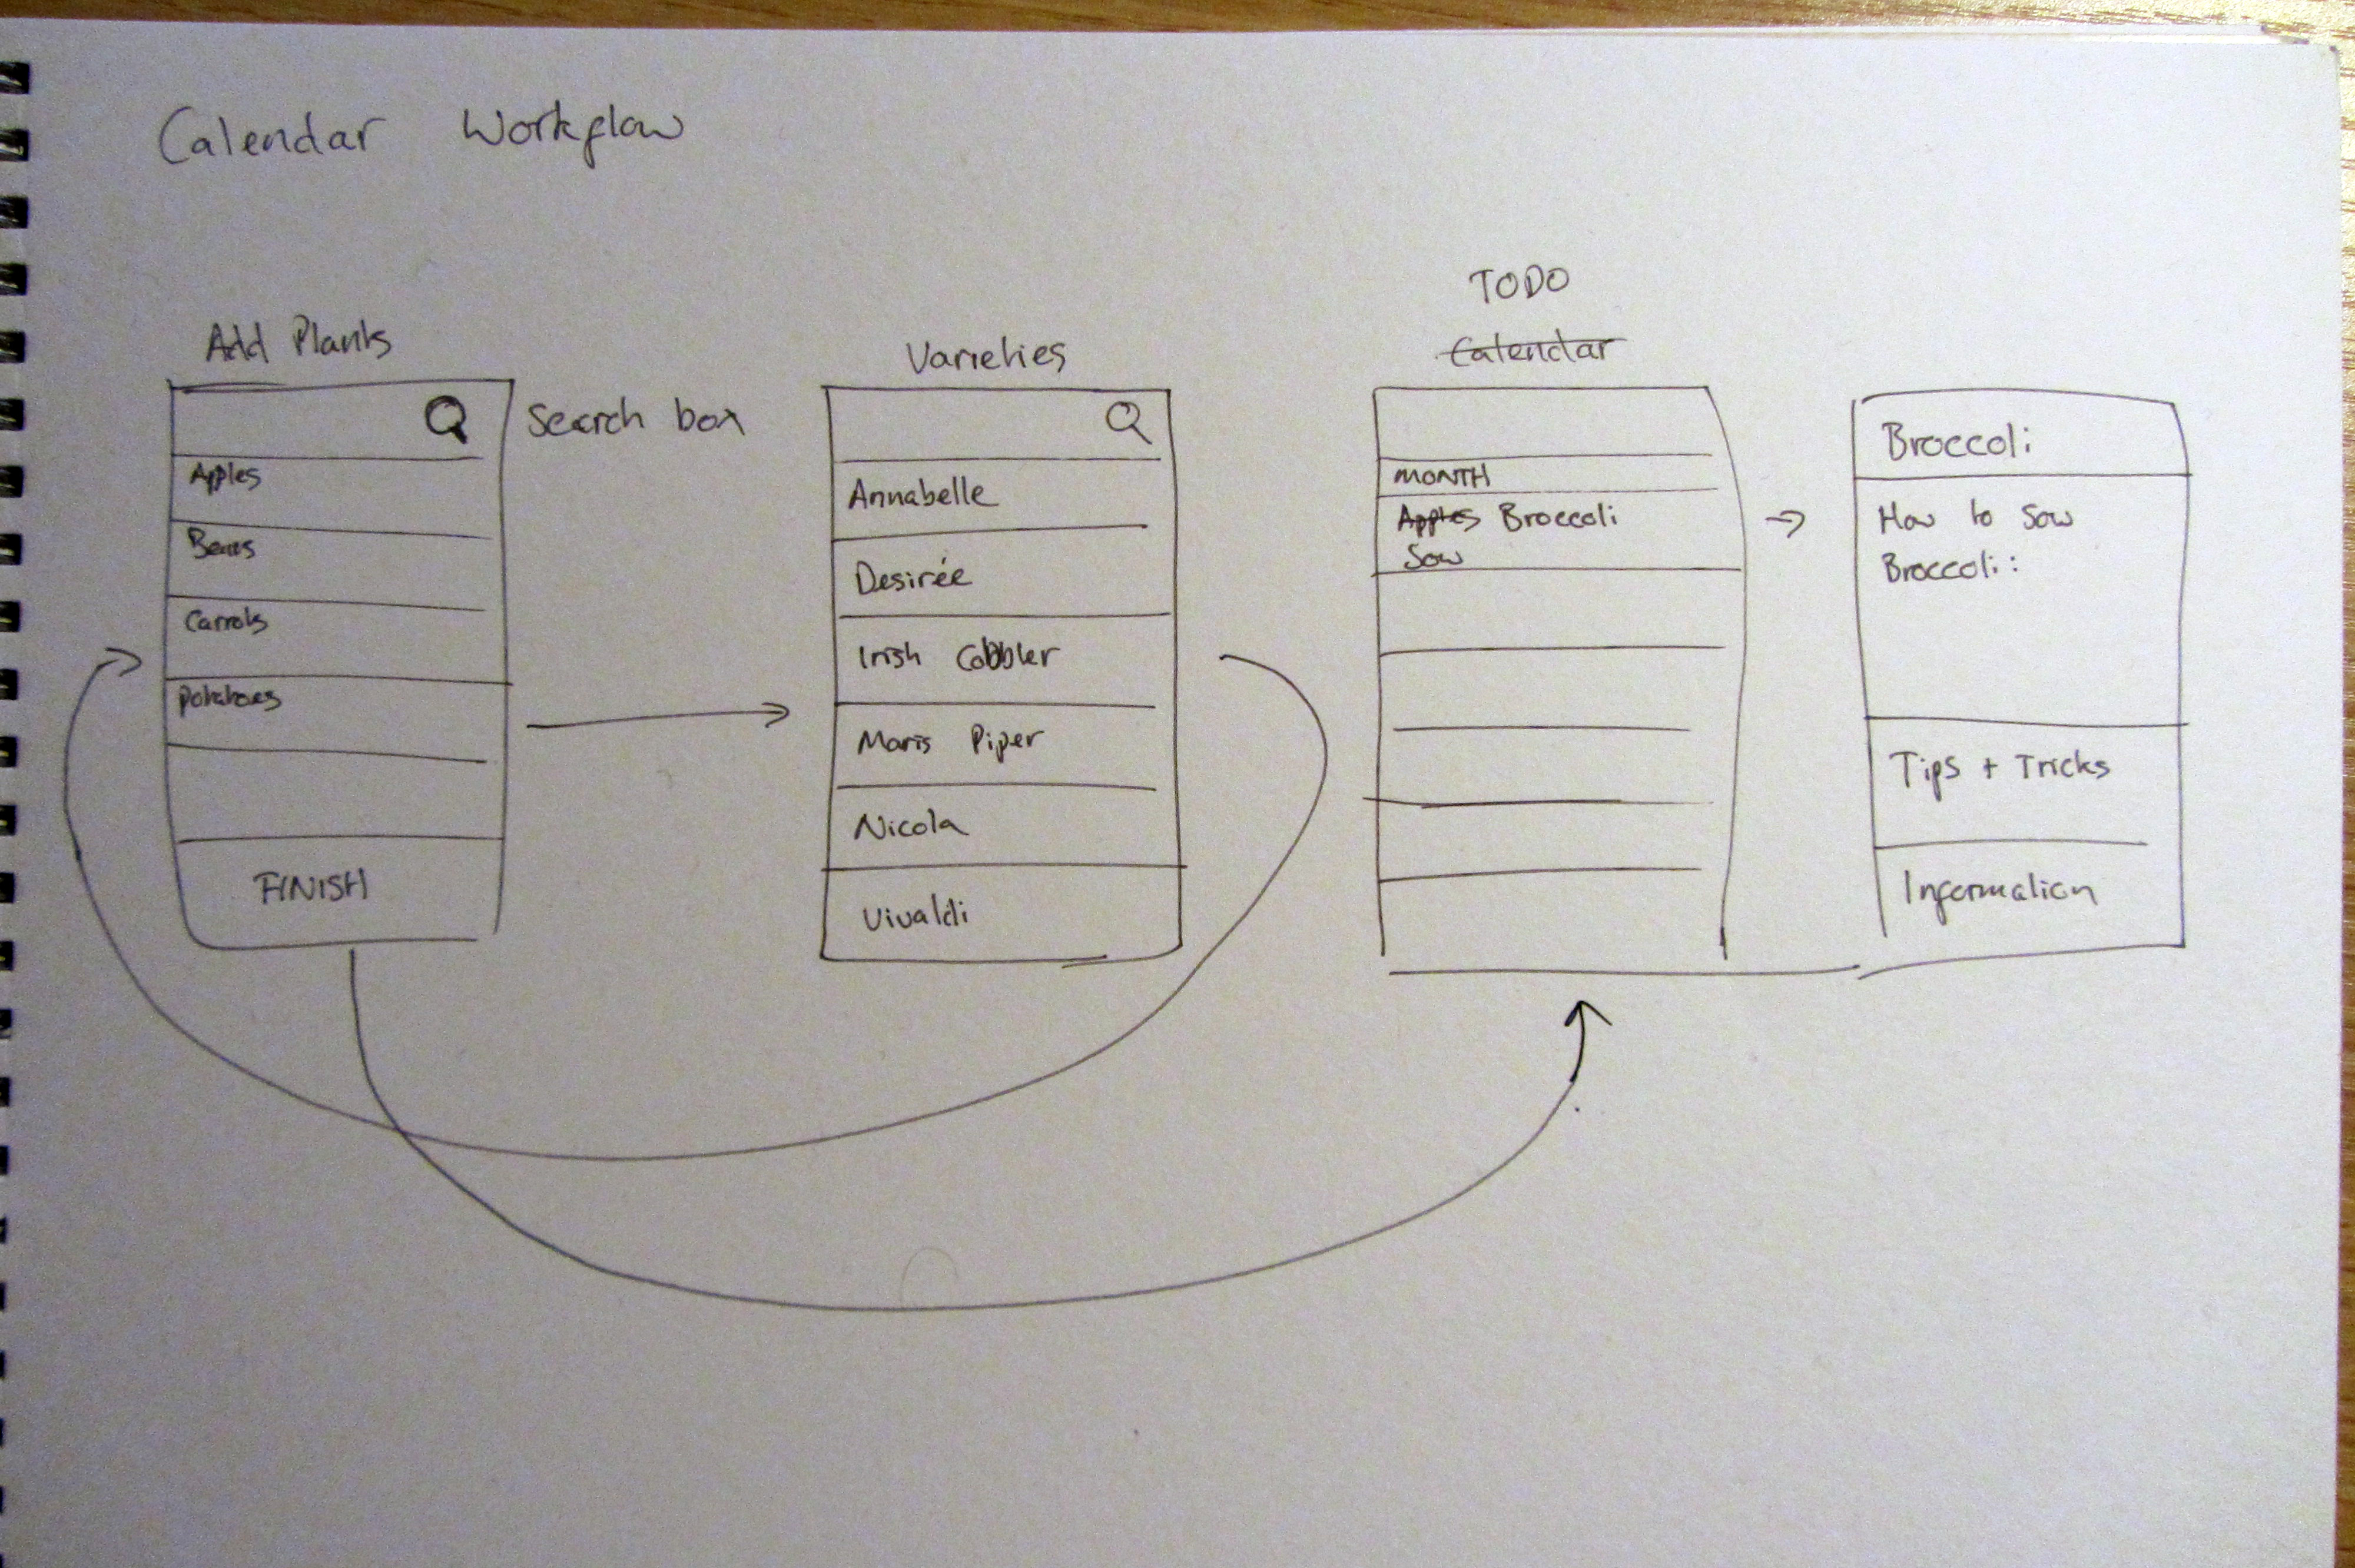 Calendar Workflow
Add Plants
Search box
Apples
Beans
Carrots
Potatoes
FINISH
Varieties
Annabelle
Desirée
Irish Cobbler
Maris Piper
Nicola
Vivaldi
TODO
Calendar
MONTH
Apples Broccoli
Sow
Broccoli
How to Sow
Broccoli:
Tips + Tricks
Information